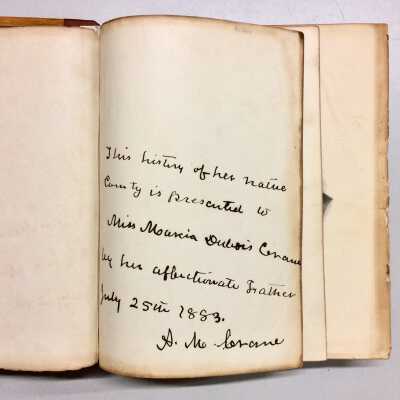 This history of her native
County is presented to
Miss Marcia Dubois Crane
by her affectionate Father
July 25th 1883.
A. M. Crane